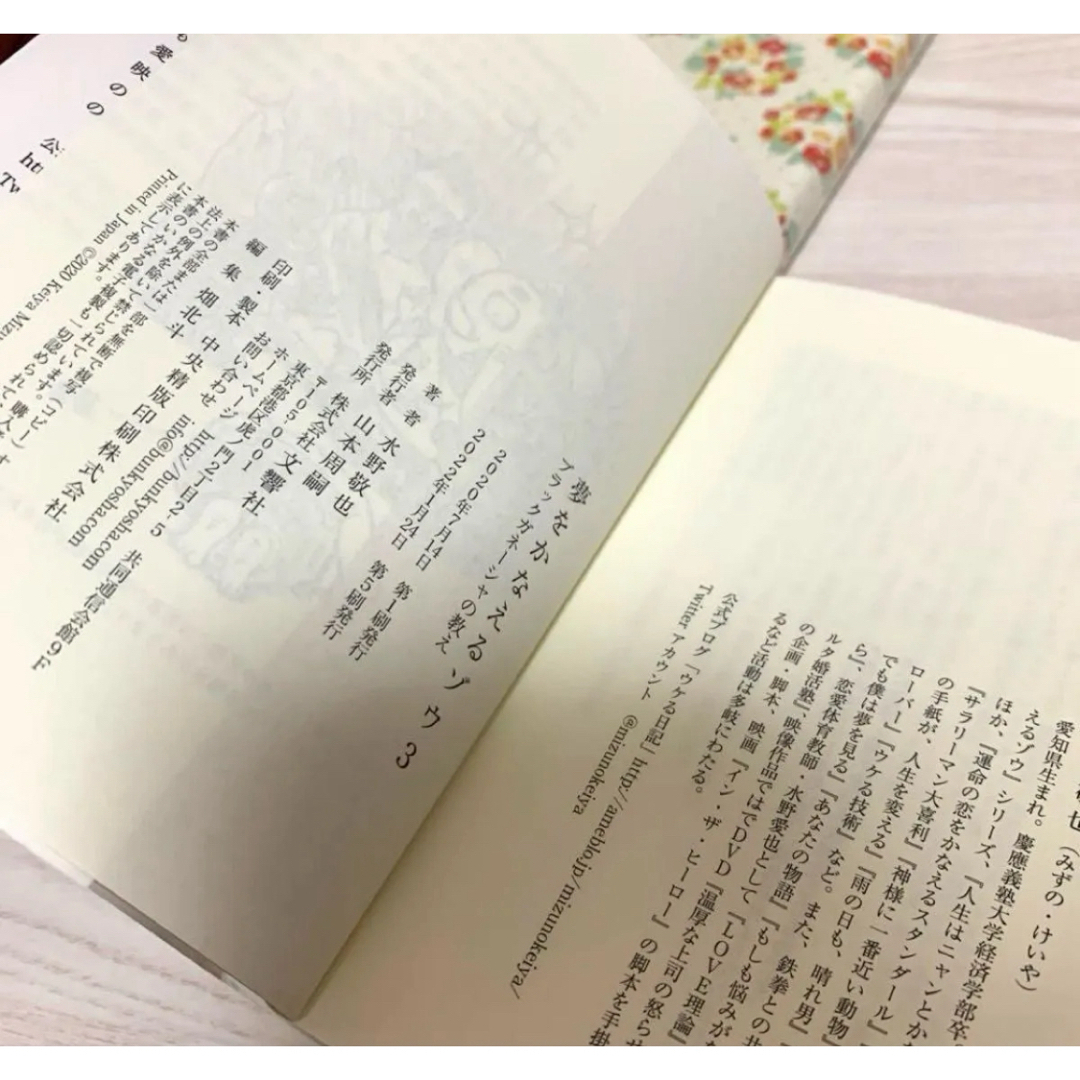 也(みずの・けいや)
愛知県生まれ。慶應義塾大学経済学部卒。
えるゾウ』シリーズ、『人生はニャンとか
ほか、『運命の恋をかなえるスタンダール』
『サラリーマン大喜利』『神様に一番近い動物』
の手紙が、人生を変える』『雨の日も、晴れ男』
ローバー』『ウケる技術』など。また、鉄拳との共
でも僕は夢を見る』『あなたの物語』『もしも悩みが
ら』、恋愛体育教師・水野愛也として『LOVE理論』
ルタ婚活塾』、映像作品ではDVD『温厚な上司の怒らせ
の企画・脚本、映画『イン・ザ・ヒーロー』の脚本を手掛
るなど活動は多岐にわたる。
公式ブログ「ウケる日記」http://ameblo.jp/mizunokeiya/
Twitter アカウント @mizunokeiya
夢をかなえるゾウ3
ブラックガネーシャの教え
2020年7月14日 第1刷発行
2022年1月24日 第5刷発行
著者 水野敬也
発行者 山本周嗣
発行所 株式会社文響社
〒105-0001
東京都港区虎ノ門2丁目2-5 共同通信会館9F
ホームページ http://bunkyosha.com
お問い合わせ info@bunkyosha.com
印刷・製本 中央精版印刷株式会社
編集 畑北斗
本書の全部または一部を無断で複写(コピー)
法上の例外を除いて禁じられています。購入
本書のいかなる電子複製も一切認められて
に表示してあります。
Printed in Japan ©2020 Keiya Mizu
も
愛
映
の
の
公
ht
Tw